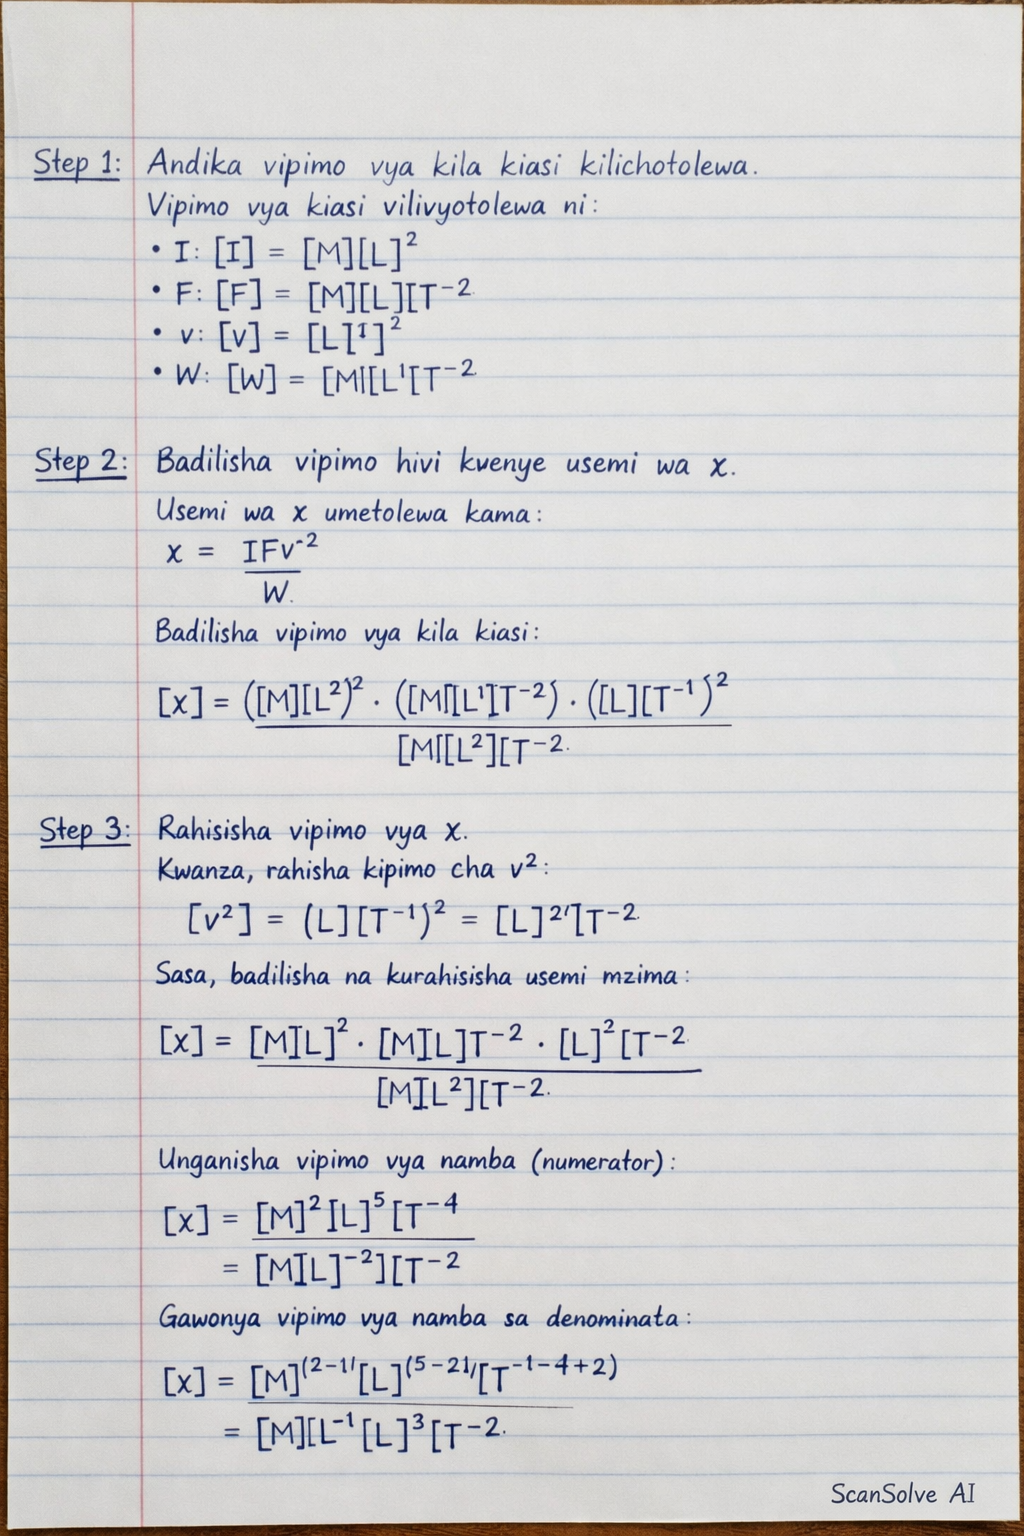 Step 1: Andika vipimo vya kila kiasi kilichotolewa.
Vipimo vya kiasi vilivyotolewa ni:
• I: [I] = [M][L]²
• F: [F] = [M][L][T⁻²
• v: [v] = [L][¹]²
• W: [W] = [M|[L'[T⁻²
Step 2: Badilisha vipimo hivi kwenye usemi wa x.
Usemi wa x umetolewa kama:
x = IFv⁻²
W.
Badilisha vipimo vya kila kiasi:
[x] = ([M][L²)² · ([M[[L']T⁻²) · ([L][T⁻¹)²
[M[[L²][T⁻².
Step 3: Rahisisha vipimo vya x.
Kwanza, rahisha kipimo cha v²:
[v²] = (L][T⁻¹)² = [L]²'[T⁻²
Sasa, badilisha na kurahisisha usemi mzima:
[x] = [M]L]² · [M]L]T⁻² · [L]²[T⁻²
[M]L²][T⁻².
Unganisha vipimo vya namba (numerator):
[x] = [M]²[L]⁵[T⁻⁴
= [M]L]⁻²][T⁻²
Gawonya vipimo vya namba sa denominata:
[x] = [M]⁽²⁻¹'[L]⁽⁵⁻²¹/[T⁻¹⁻⁴⁺²⁾
= [M][L⁻¹[L]³[T⁻².
ScanSolve AI